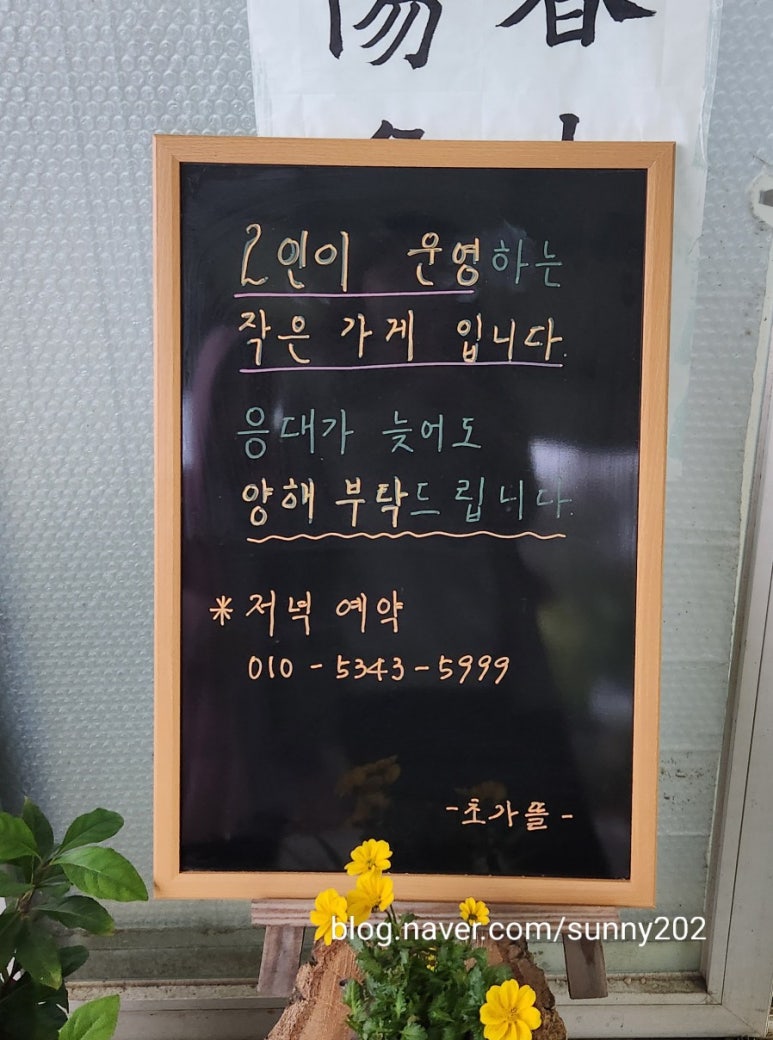 春
陽
2인이 운영하는
작은 가게 입니다.
응대가 늦어도
양해 부탁드립니다.
* 저녁 예약
010 - 5343 - 5999
- 초가뜰 -
blog.naver.com/sunny202